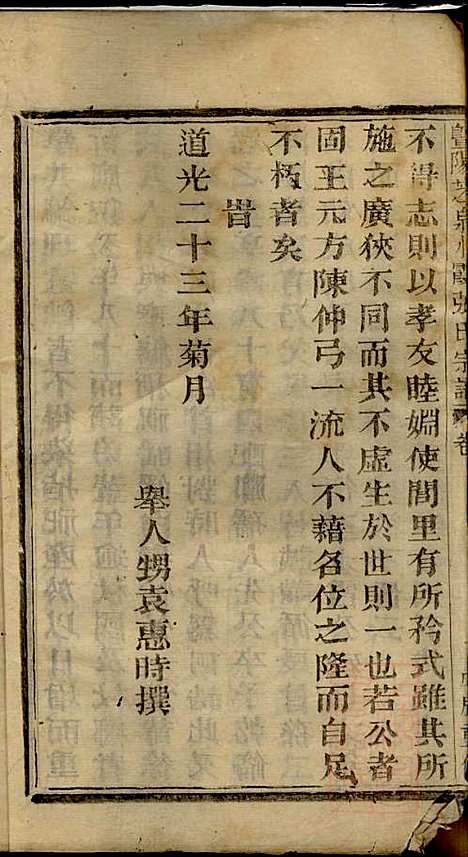 不得志則以孝友睦婣使閭里有所矜式雖其所
施之廣狹不同而其不虛生於世則一也若公者
固王元方陳仲弓一流人不藉名位之隆而自足
不朽者矣
旹
道光二十三年菊月
舉人甥袁惠時撰